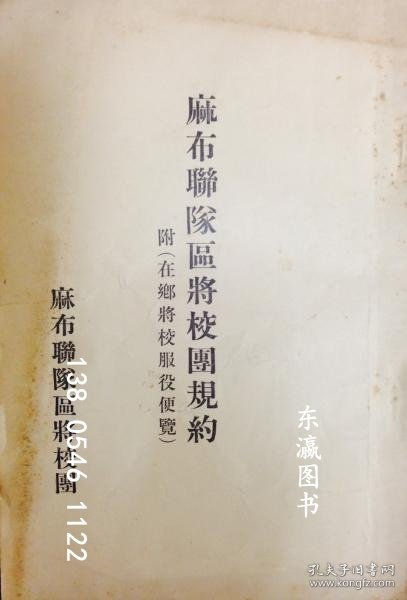 麻布聯隊區將校團規約
附(在鄉將校服役便覽)
麻布聯隊區將校團
138 0546 1122
东瀛图书
孔夫子旧书网
book.kongfz.com